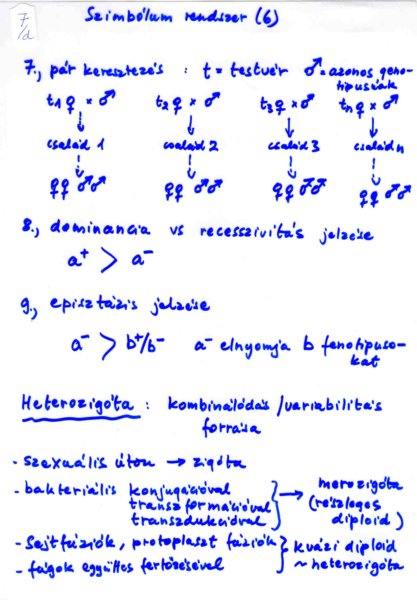 7/d
Szimbólum rendszer (6)
7., pár keresztezés : t = testvér ♂ = azonos geno-
tipusúak
t1♀ × ♂ t2♀ × ♂ t3♀ × ♂ tn♀ × ♂
család 1 család 2 család 3 család n
♀♀ ♂♂ ♀♀ ♂♂ ♀♀ ♂♂ ♀♀ ♂♂
8., dominancia vs recesszivitás jelzése
a+ > a-
9., episztázis jelzése
a- > b+/b- a- elnyomja b fenotipuso-
kat
Heterozigóta : kombinálódás /variabilitás
forrása
- szexuális úton → zigóta
- bakteriális konjugációval
transzformációval
transzdukcióval
→ merozigóta
(részleges
diploid)
- Sejtfúziók, protoplaszt fúziók
- fágok együttes fertőzésével
kvázi diploid
~ heterozigóta